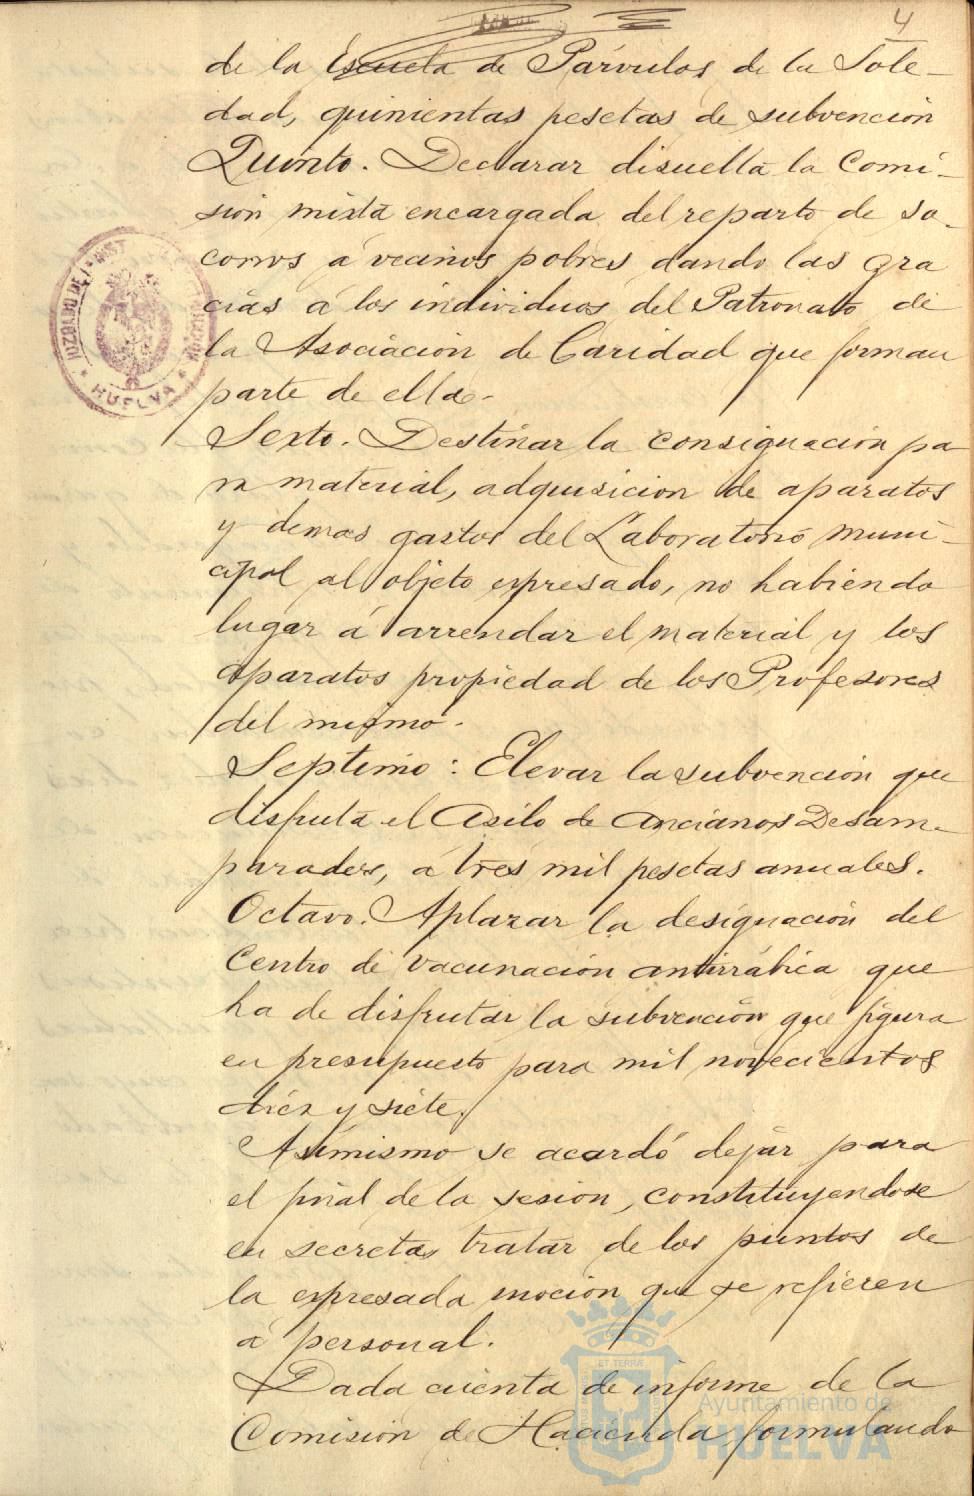 4
de la Escuela de Párvulos de la Sole-
dad, quinientas pesetas de subvención
Quinto. Declarar disuelta la Comi-
sión mixta encargada del reparto de so-
corros á vecinos pobres dando las gra
cias á los individuos del Patronato de
la Asociación de Caridad que forman
parte de ella.
Sexto. Destinar la consignación pa
ra material, adquisicion de aparatos
y demas gastos del Laboratorio muni-
cipal al objeto expresado, no habiendo
lugar á arrendar el material y los
aparatos propiedad de los Profesores
del mismo.
Septimo: Elevar la subvención que
disfruta el Asilo de Ancianos Desam-
parados, á tres mil pesetas anuales.
Octavo. Aplazar la designación del
Centro de vacunación antirrábica que
ha de disfrutar la subvención que figura
en presupuesto para mil novecientos
diez y siete.
Asimismo se acordó dejar para
el final de la sesión, constituyendose
en secreta, tratar de los puntos de
la expresada moción que se refieren
a personal.
Dada cuenta de informe de la
Comisión de Hacienda formulando
HUELVA
Ayuntamiento de
HUELVA